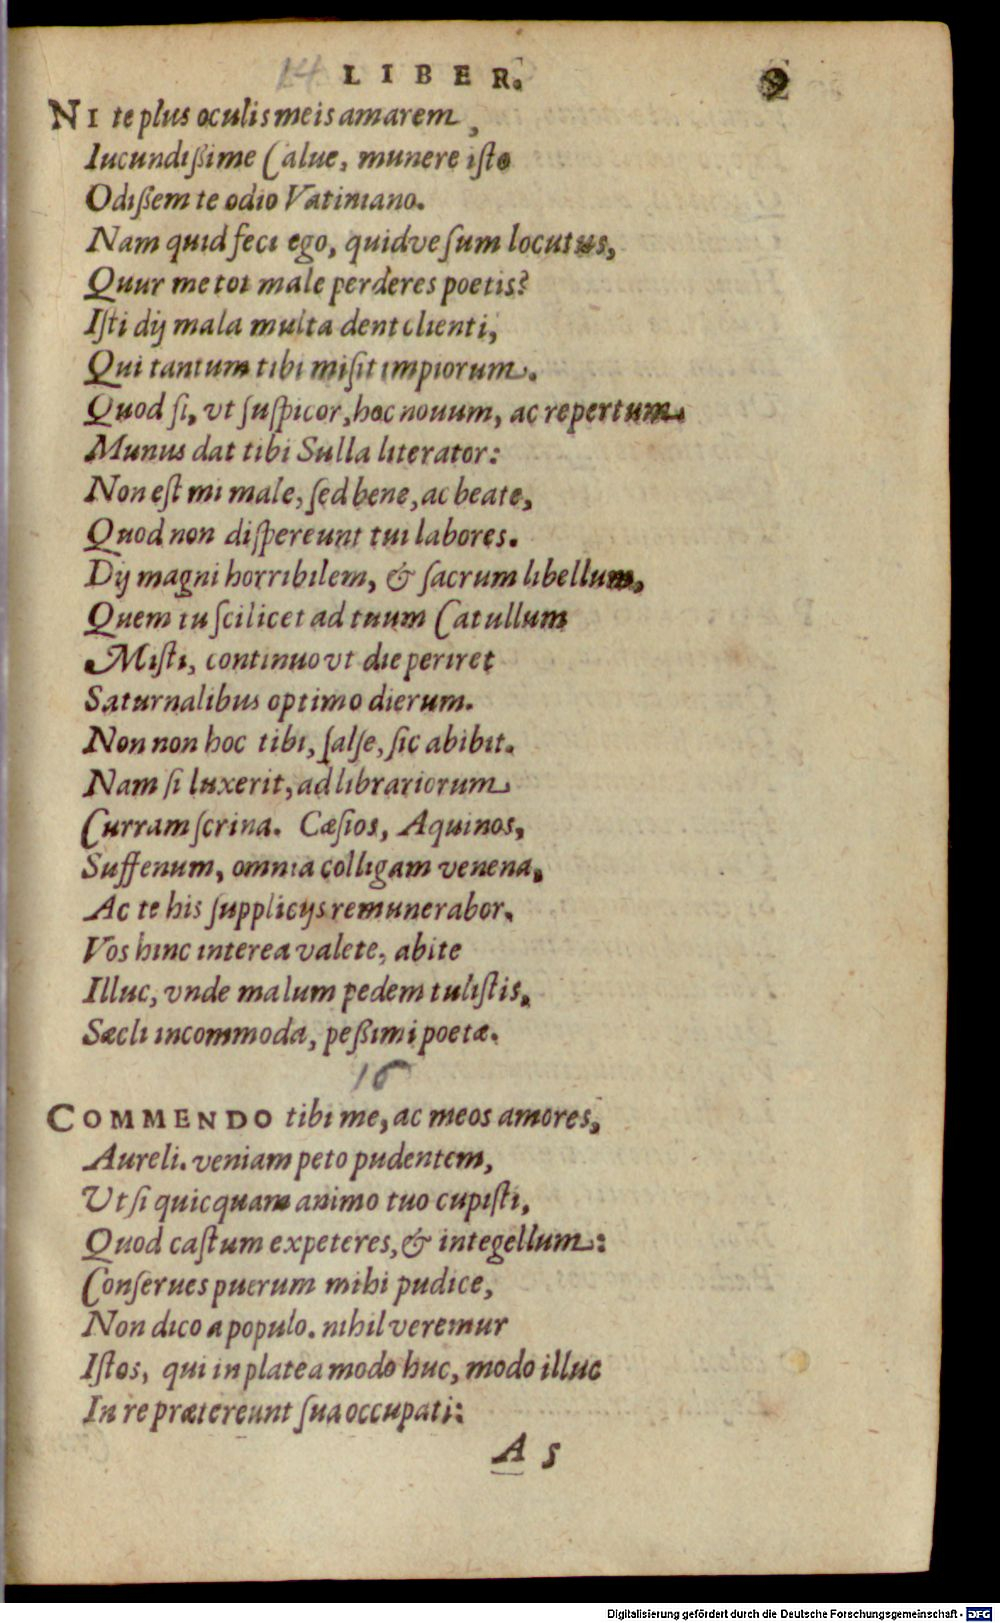 14 LIBER. 9
NI te plus oculis meis amarem,
Iucundißime Calue, munere isto
Odißem te odio Vatiniano.
Nam quid feci ego, quidve ſum locutus,
Quur me tot male perderes poetis?
Iſti dij mala multa dent clienti,
Qui tantum tibi miſit impiorum.
Quod ſi, vt ſuſpicor, hoc nouum, ac repertum
Munus dat tibi Sulla literator:
Non eſt mi male, ſed bene, ac beate,
Quod non diſpereunt tui labores.
Dij magni horribilem, & ſacrum libellum,
Quem tu ſcilicet ad tuum Catullum
Miſti, continuo vt die periret
Saturnalibus optimo dierum.
Non non hoc tibi, ſalſe, ſic abibit.
Nam ſi luxerit, ad librariorum
Curram ſcrina. Cæſios, Aquinos,
Suffenum, omnia colligam venena,
Ac te his ſupplicijs remunerabor.
Vos hinc interea valete, abite
Illuc, vnde malum pedem tuliſtis,
Sæcli incommoda, peßimi poetæ.
COMMENDO tibi me, ac meos amores,
Aureli. veniam peto pudentem,
Ut ſi quicquam animo tuo cupiſti,
Quod caſtum expeteres, & integellum:
Conſerues puerum mihi pudice,
Non dico a populo. nihil veremur
Iſtos, qui in platea modo huc, modo illuc
In re prætereunt ſua occupati:
A 5
Digitalisierung gefördert durch die Deutsche Forschungsgemeinschaft - DFG